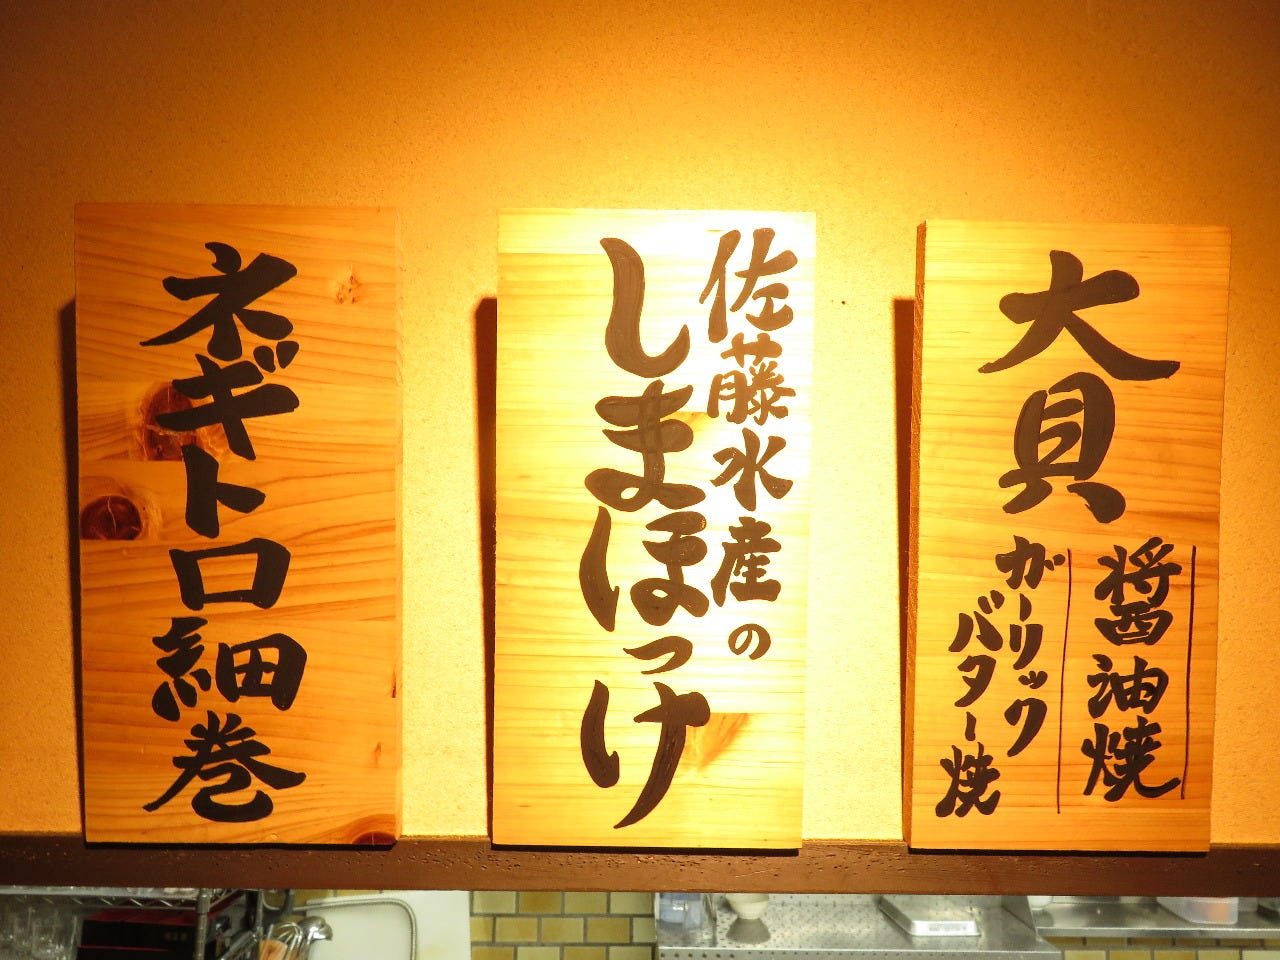 大貝
醤油焼
ガーリック
バター焼
佐藤水産の
しまほっけ
ネギトロ細巻